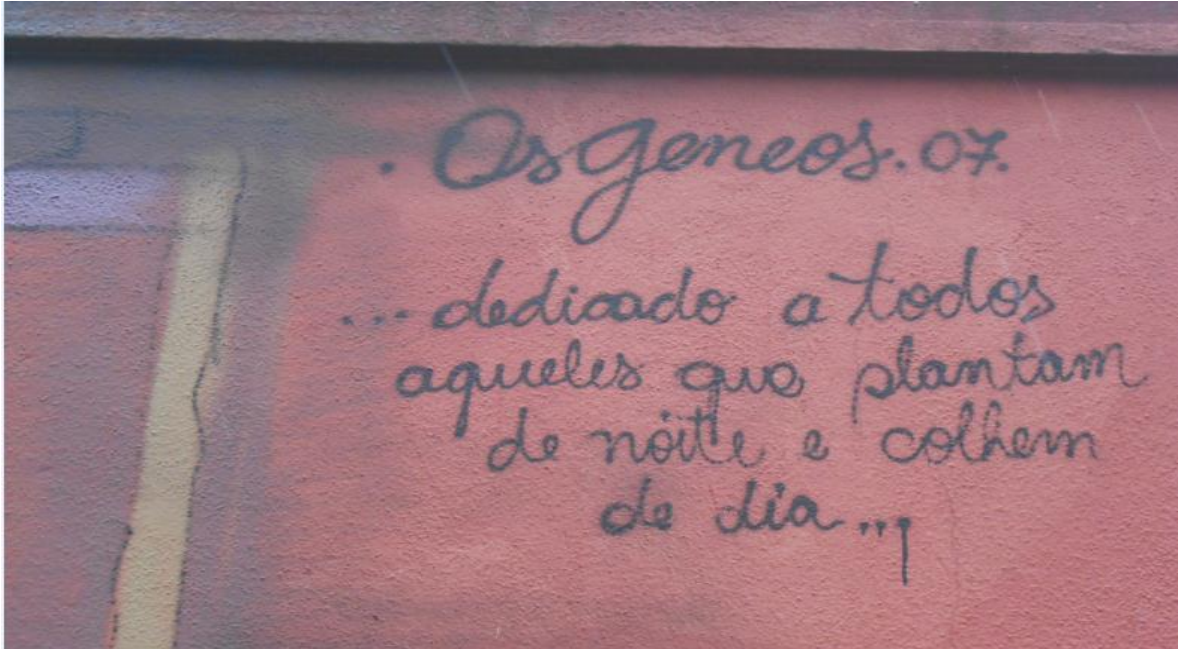 . Os gemeos. 07.
... dedicado a todos
aqueles que plantam
de noite e colhem
de dia...